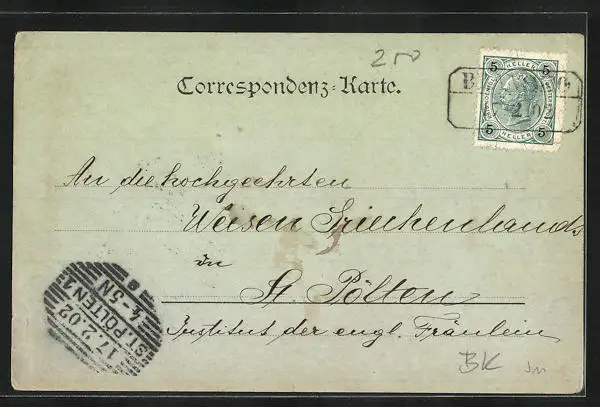 250
Correspondenz-Karte.
5 HELLER 5
5 HELLER 5
An die hochgeehrten
Weisen Griechenlands
in
St. Pölten
Institut der engl. Fräulein
ST. PÖLTEN 1
17.2.02
4-5N
BK